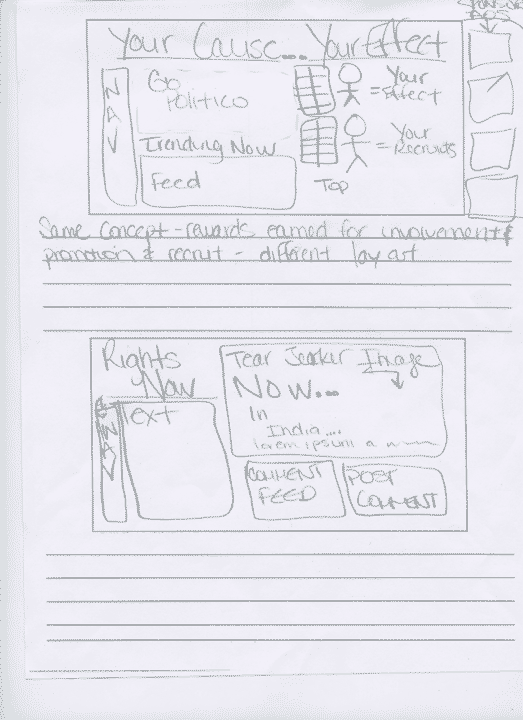 SPONSOR
ADS
Your Cause... Your Effect
NAV
Go
Politico
= Your
Effect
Trending Now
= Your
Recruits
Feed
Top
Same Concept - rewards earned for involvement &
promotion & recruit - different layout
Rights
Now
Tear Jearker Image
NOW...
NAV
Text
In
India....
lorem ipsum a
COMMENT
FEED
POST
COMMENT